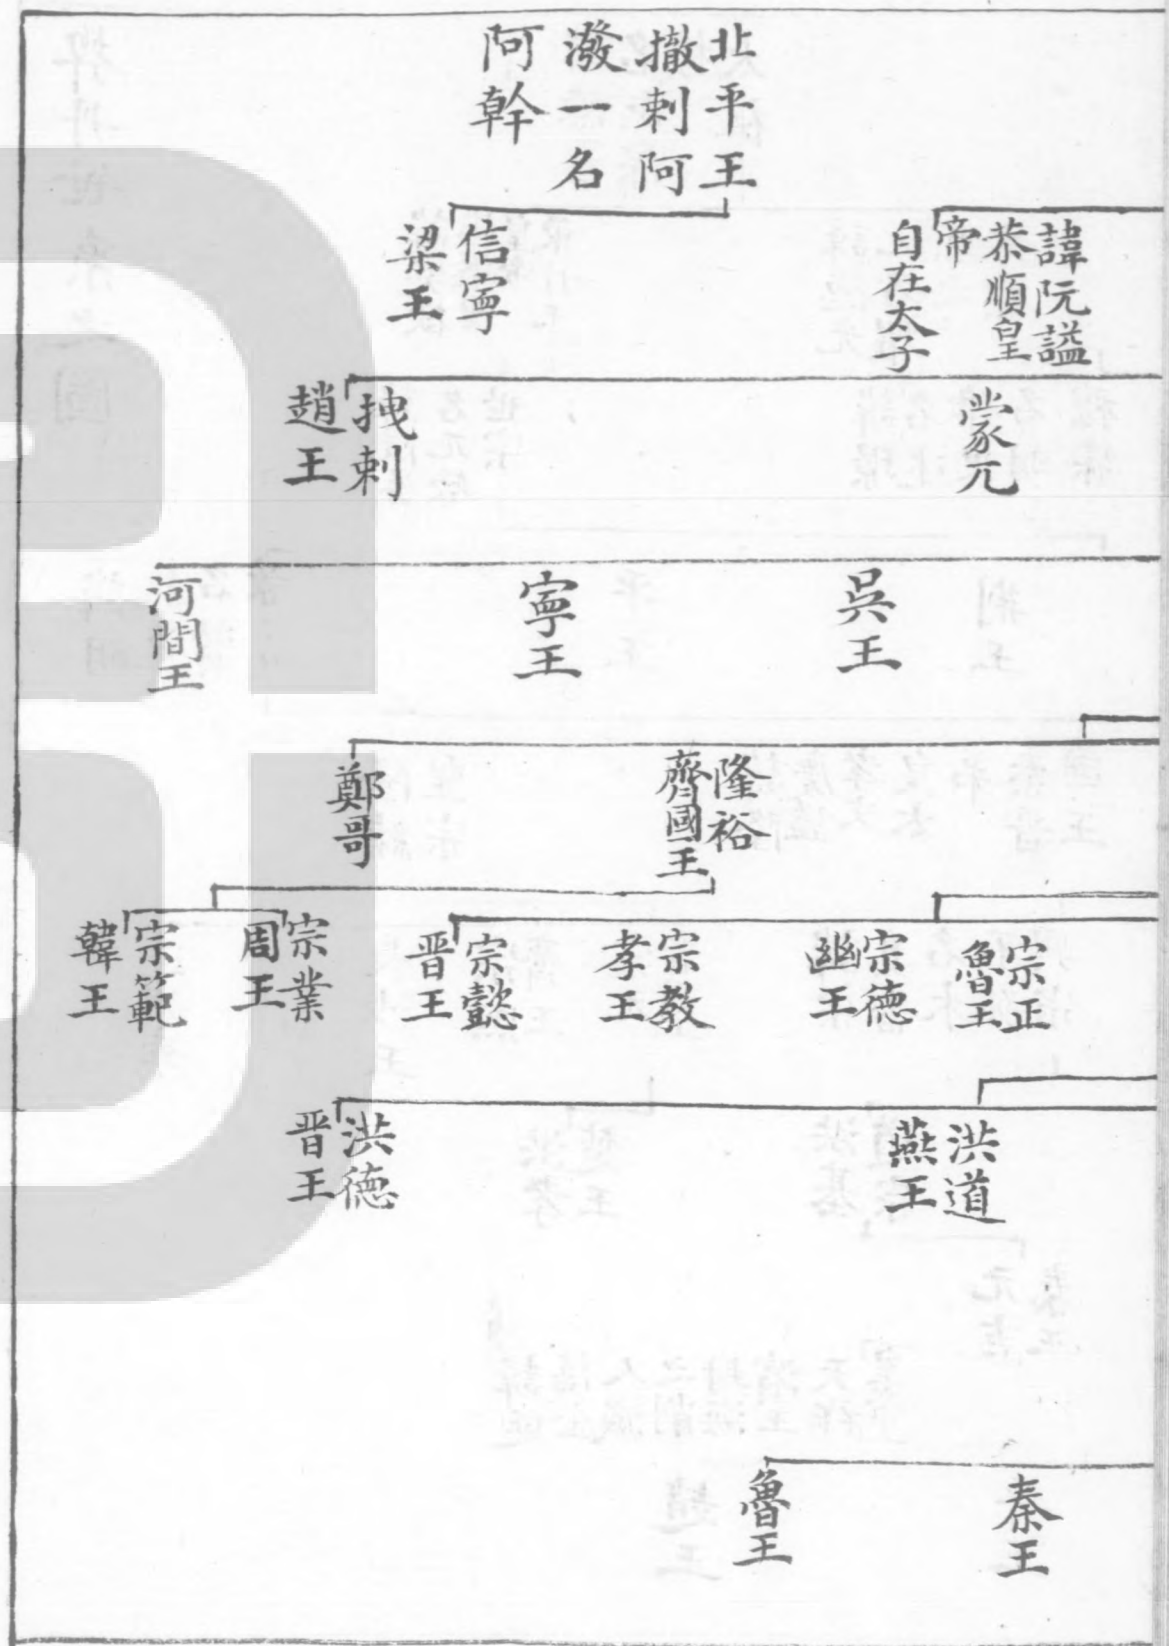 北平王
撒剌阿
潑一名
阿幹
諱阮謚
恭順皇
帝
自在太子
信寧
梁王
蒙兀
拽剌
趙王
吳王
寧王
河間王
隆裕
齊國王
鄭哥
宗正
魯王
宗德
幽王
宗教
孝王
宗懿
晋王
宗業
周王
宗範
韓王
洪道
燕王
洪德
晋王
秦王
魯王